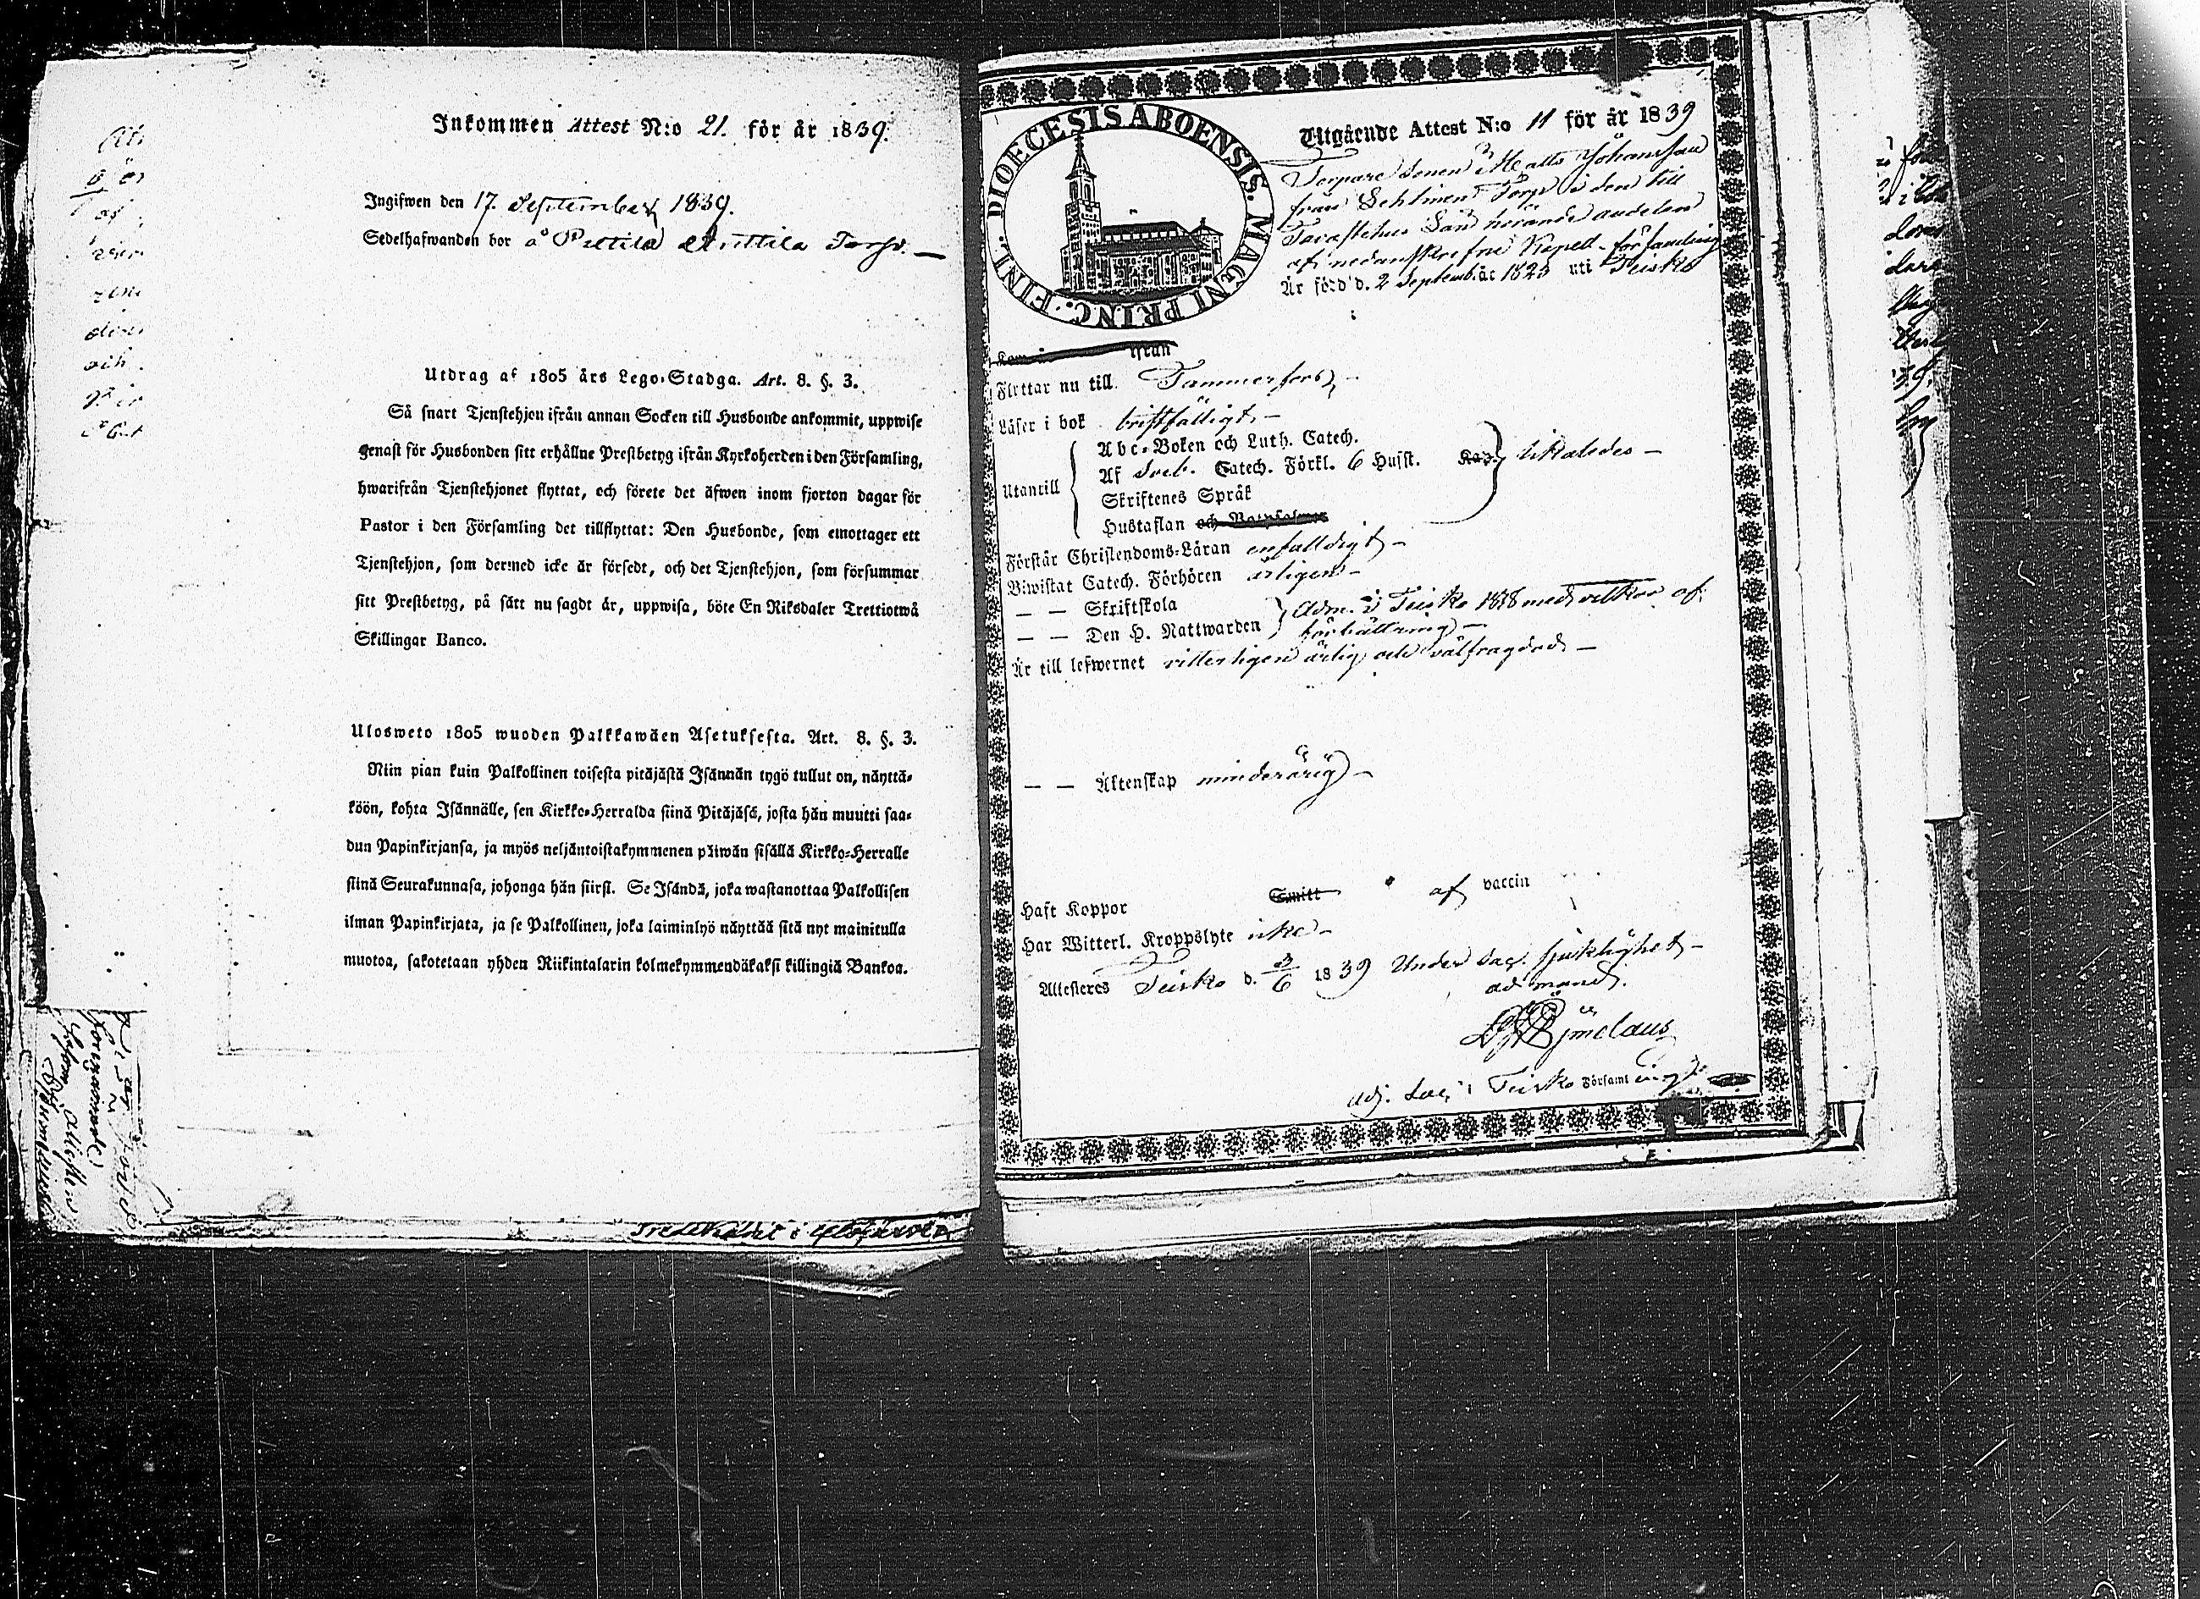 Inkommen Attest N:o 21. för år 1839.
Ingifwen den 17. September 1839.
Sedelhafwanden bor å Pettilä Anttila Torp.
Utdrag af 1805 års Lego-Stadga. Art. 8. §. 3.
Så snart Tjenstehjon ifrån annan Socken till Husbonde ankommit, uppwise
genast för Husbonden sitt erhållne Prestbetyg ifrån Kyrkoherden i den Församling,
hwarifrån Tjenstehjonet flyttat, och förete det äfwen inom fjorton dagar för
Pastor i den Församling det tillflyttat: Den Husbonde, som emottager ett
Tjenstehjon, som dermed icke är försedt, och det Tjenstehjon, som försummar
sitt Prestbetyg, på sätt nu sagdt är, uppwisa, böte En Riksdaler Trettiotwå
Skillingar Banco.
Ulosweto 1805 wuoden Palkkawäen Asetuksesta. Art. 8. §. 3.
Niin pian kuin Palkollinen toisesta pitäjästä Isännän tygö tullut on, näyttä-
köön, kohta Isännälle, sen Kirkko-Herralda siinä Pitäjäsä, josta hän muutti saa-
dun Papinkirjansa, ja myös neljäntoistakymmenen päiwän sisällä Kirkko-Herralle
siinä Seurakunnasa, johonga hän siirsi. Se Isändä, joka wastanottaa Palkollisen
ilman Papinkirjata, ja se Palkollinen, joka laiminlyö näyttää sitä nyt mainitulla
muotoa, sakotetaan yhden Riikintalarin kolmekymmendäkaksi killingiä Bankoa.
DIOECESIS ABOENSIS. MAGNI PRINC. FINL.
Utgående Attest N:o 11 för år 1839
Torpare sonen Matts Johansson
från Torp i den till
Tavastehus Län hörande andelen
af nedanskrefne Kapell-församling
Är född d. 2 September 1823 uti Teisko
ifrån
Flyttar nu till Tammerfors
Läser i bok bristfälligt
Abc-Boken och Luth. Catech.
Utantill Af Sveb. Catech. Förkl. 6 Hufst. Kap. likaledes
Skriftenes Språk
Hustaflan och Botpsalmer
Förstår Christendoms-Läran enfalldigt
Biwistat Catech. Förhören årligen
— — Skriftskola Adm. i Teisko 1838 med vilkor af
— — Den H. Nattwarden förbättring
Är till lefwernet vitterligen ärlig och välfrägdad
— — Äktenskap minderårig
Haft Koppor Smitt af vaccin
Har Witterl. Kroppslyte icke
Attesteres Teisko d. 3/6 1839 Under Sac. sjuklighet
ad mand.
Björnelaus
Adj. Sac. i Teisko Församling